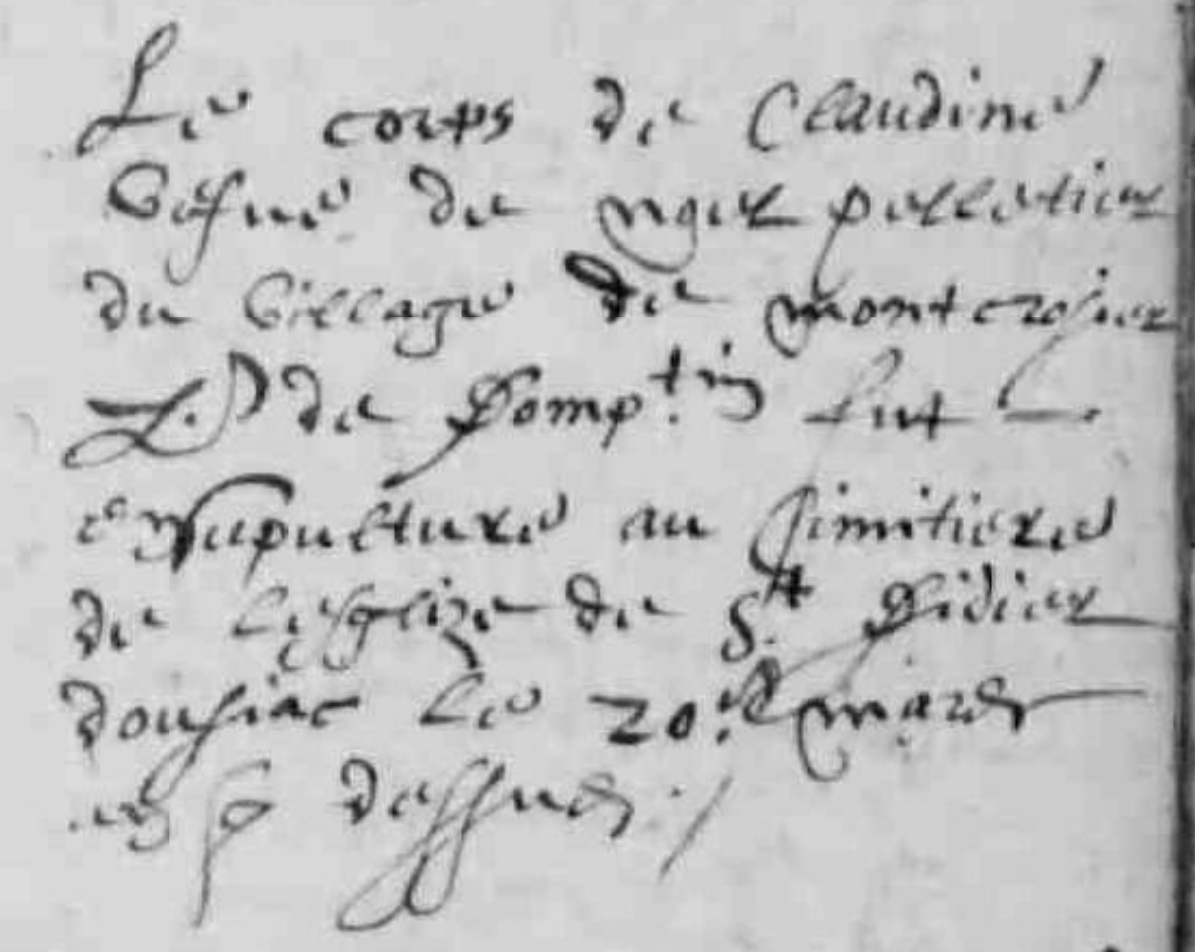 Le corps de Claudine
vefue de pelletier
du village de montcrosier
de Domp.t fut
ensepulture au simitiere
de lesglize de S.t Didier
dousiac le 20.e mars
dessus ./